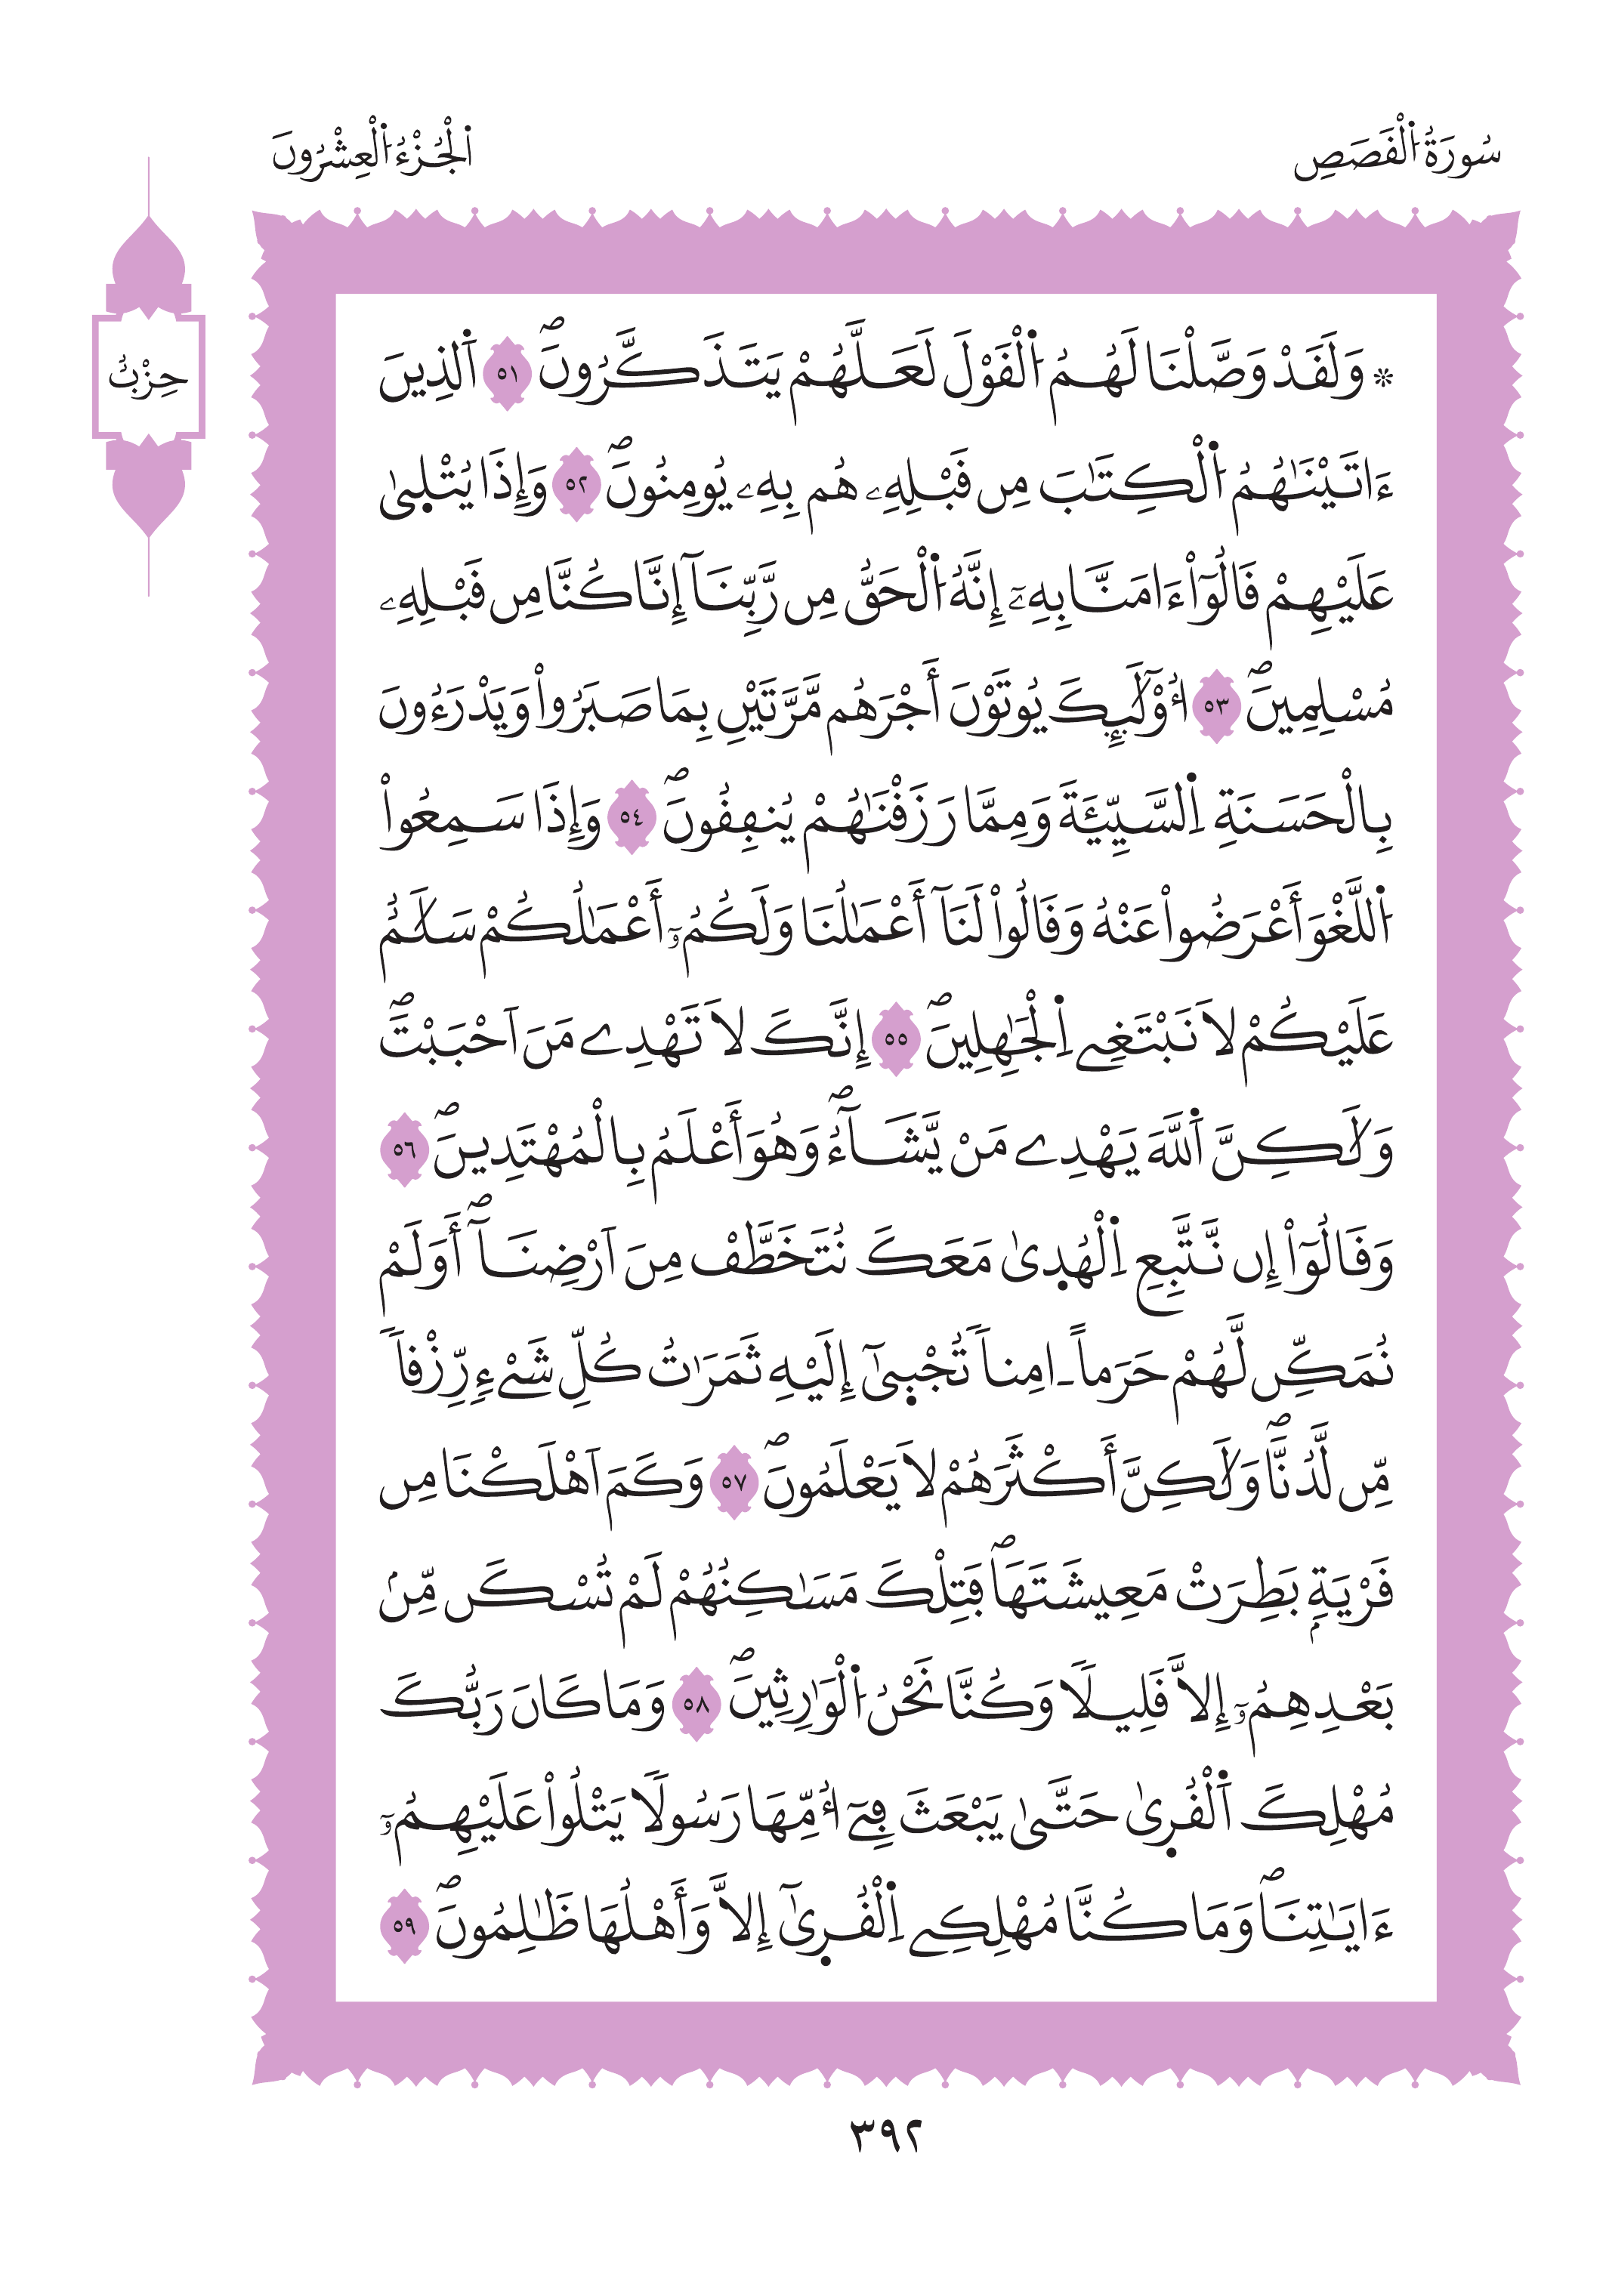 سُورَةُ اُ۬لْقَصَصِ
اِ۬لْجُزْءُ اُ۬لْعِشْرُونَ
حِزْبٌ
۞ وَلَقَدْ وَصَّلْنَا لَهُمُ اُ۬لْقَوْلَ لَعَلَّهُمْ يَتَذَكَّرُونَۖ ٥١ اَ۬لذِينَ
ءَاتَيْنَٰهُمُ اُ۬لْكِتَٰبَ مِن قَبْلِهِۦ هُم بِهِۦ يُومِنُونَۖ ٥٢ وَإِذَا يُتْل۪يٰ
عَلَيْهِمْ قَالُوٓاْ ءَامَنَّا بِهِۦٓ إِنَّهُ اُ۬لْحَقُّ مِن رَّبِّنَآ إِنَّا كُنَّا مِن قَبْلِهِۦ
مُسْلِمِينَۖ ٥٣ أُوْلَٰٓئِكَ يُوتَوْنَ أَجْرَهُم مَّرَّتَيْنِ بِمَا صَبَرُواْ وَيَدْرَءُونَ
بِالْحَسَنَةِ اِ۬لسَّيِّئَةَ وَمِمَّا رَزَقْنَٰهُمْ يُنفِقُونَۖ ٥٤ وَإِذَا سَمِعُواْ
اُ۬للَّغْوَ أَعْرَضُواْ عَنْهُ وَقَالُواْ لَنَآ أَعْمَٰلُنَا وَلَكُمُۥٓ أَعْمَٰلُكُمْ سَلَٰمٌ
عَلَيْكُمْ لَا نَبْتَغِے اِ۬لْجَٰهِلِينَۖ ٥٥ إِنَّكَ لَا تَهْدِے مَنَ اَحْبَبْتَۖ
وَلَٰكِنَّ اَ۬للَّهَ يَهْدِے مَنْ يَّشَآءُۖ وَهُوَ أَعْلَمُ بِالْمُهْتَدِينَۖ ٥٦
وَقَالُوٓاْ إِن نَّتَّبِعِ اِ۬لْهُد۪يٰ مَعَكَ نُتَخَطَّفْ مِنَ اَرْضِنَآۖ أَوَلَمْ
نُمَكِّن لَّهُمْ حَرَماً ـ امِناً تُجْب۪يٰٓ إِلَيْهِ ثَمَرَٰتُ كُلِّ شَےْءٖ رِّزْقاً
مِّن لَّدُنَّاۖ وَلَٰكِنَّ أَكْثَرَهُمْ لَا يَعْلَمُونَۖ ٥٧ وَكَمَ اَهْلَكْنَا مِن
قَرْيَةِۢ بَطِرَتْ مَعِيشَتَهَاۖ فَتِلْكَ مَسَٰكِنُهُمْ لَمْ تُسْكَن مِّنۢ
بَعْدِهِمُۥٓ إِلَّا قَلِيلاً وَكُنَّا نَحْنُ اُ۬لْوَٰرِثِينَۖ ٥٨ وَمَا كَانَ رَبُّكَ
مُهْلِكَ اَ۬لْقُر۪يٰ حَتَّيٰ يَبْعَثَ فِےٓ أُمِّهَا رَسُولاً يَتْلُواْ عَلَيْهِمُۥٓ
ءَايَٰتِنَاۖ وَمَا كُنَّا مُهْلِكِے اِ۬لْقُر۪يٰٓ إِلَّا وَأَهْلُهَا ظَٰلِمُونَۖ ٥٩
٣٩٢